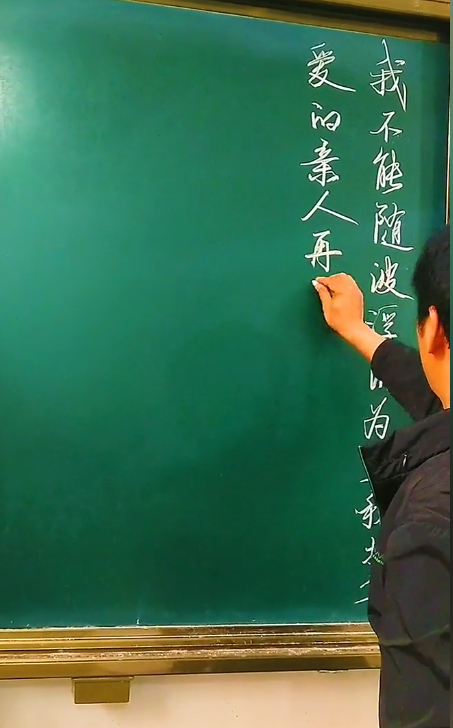 我不能随波浮沉为我挚
爱的亲人再